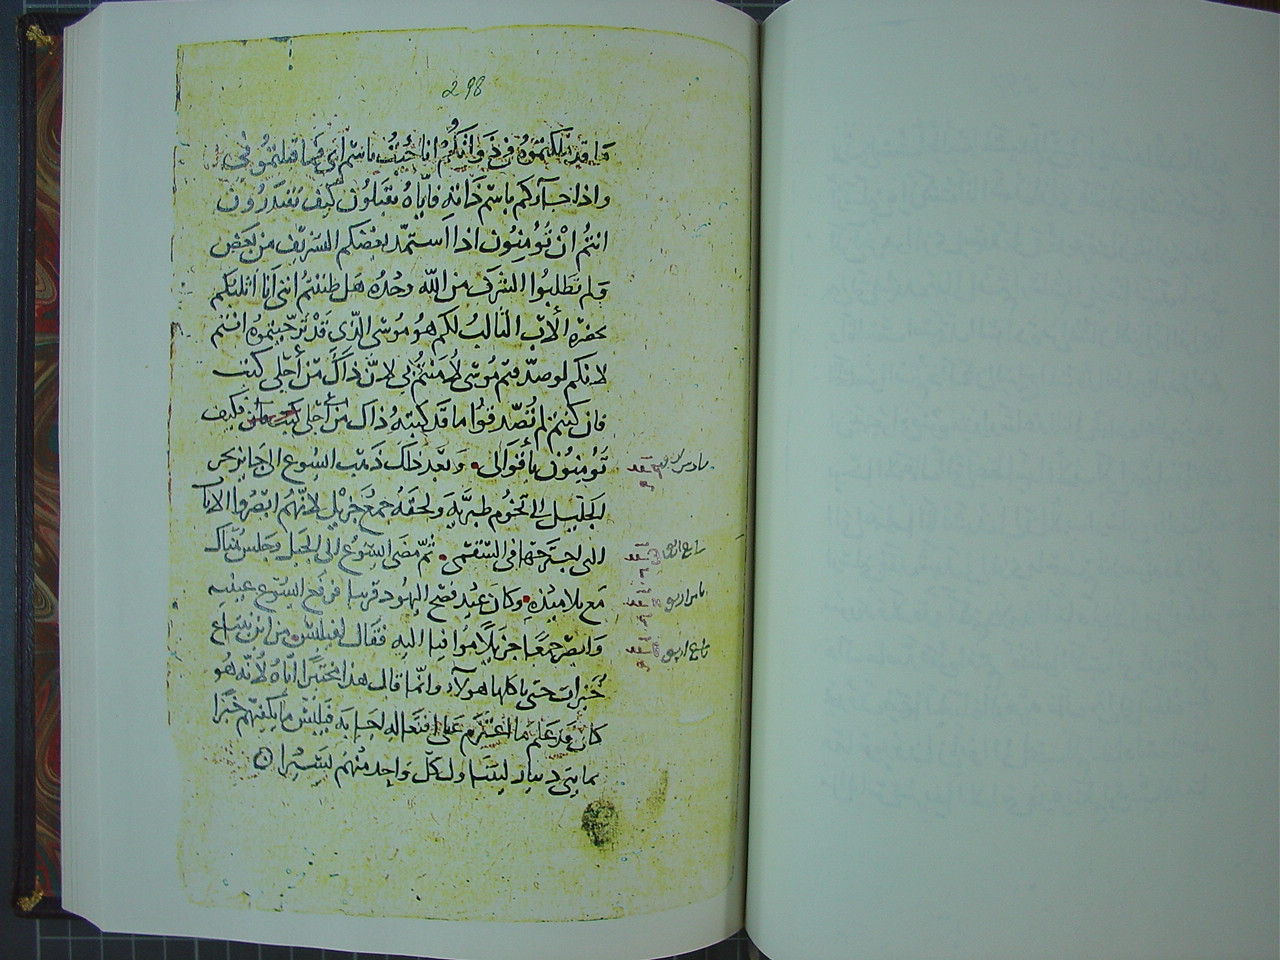 298
ما قد بلكتموه في ذوانكم انا جئت باسم ابي فما قبلتموني
واذا جاءكم باسم ذاته فاياه تقبلون كيف تقتدرون
انتم ان تومنون اذا استمد بعضكم الشريف من بعض
ولم تطلبوا الشرف من الله وحده هل ظننتم انني انا اثلبكم
بحضرة الاب الثالب لكم هو موسى الذي قد ترجيتموه انتم
لانكم لو صدقتم موسى لامنتم بي لان ذاك من اجلي كتب
فان كنتم لم تصدقوا ما قد كتبه ذاك من اجلي فكيف
تومنون باقوالي وبعد ذلك ذهب اليسوع الى جايز بحر
الجليل الى تخوم طبرية ولحقه جمع جزيل لانهم ابصروا الايات
التي اجترحها في السقمى ثم مضى اليسوع الى الجبل وجلس هناك
مع تلاميذه وكان عيد فصح اليهود قريبا فرفع اليسوع عينيه
وابصر جمعا جزيلا موافيا اليه فقال لفيلبس من اين نبتاع
خبزات حتى ياكلها هولاء وانما قال هذا مختبرا اياه لانه هو
كان قد علم ما اعتزم على افتعاله اجابه فيلبس ما يكفيهم خبزا
بمايتي دينار ليتناول كل واحد منهم يسيرا